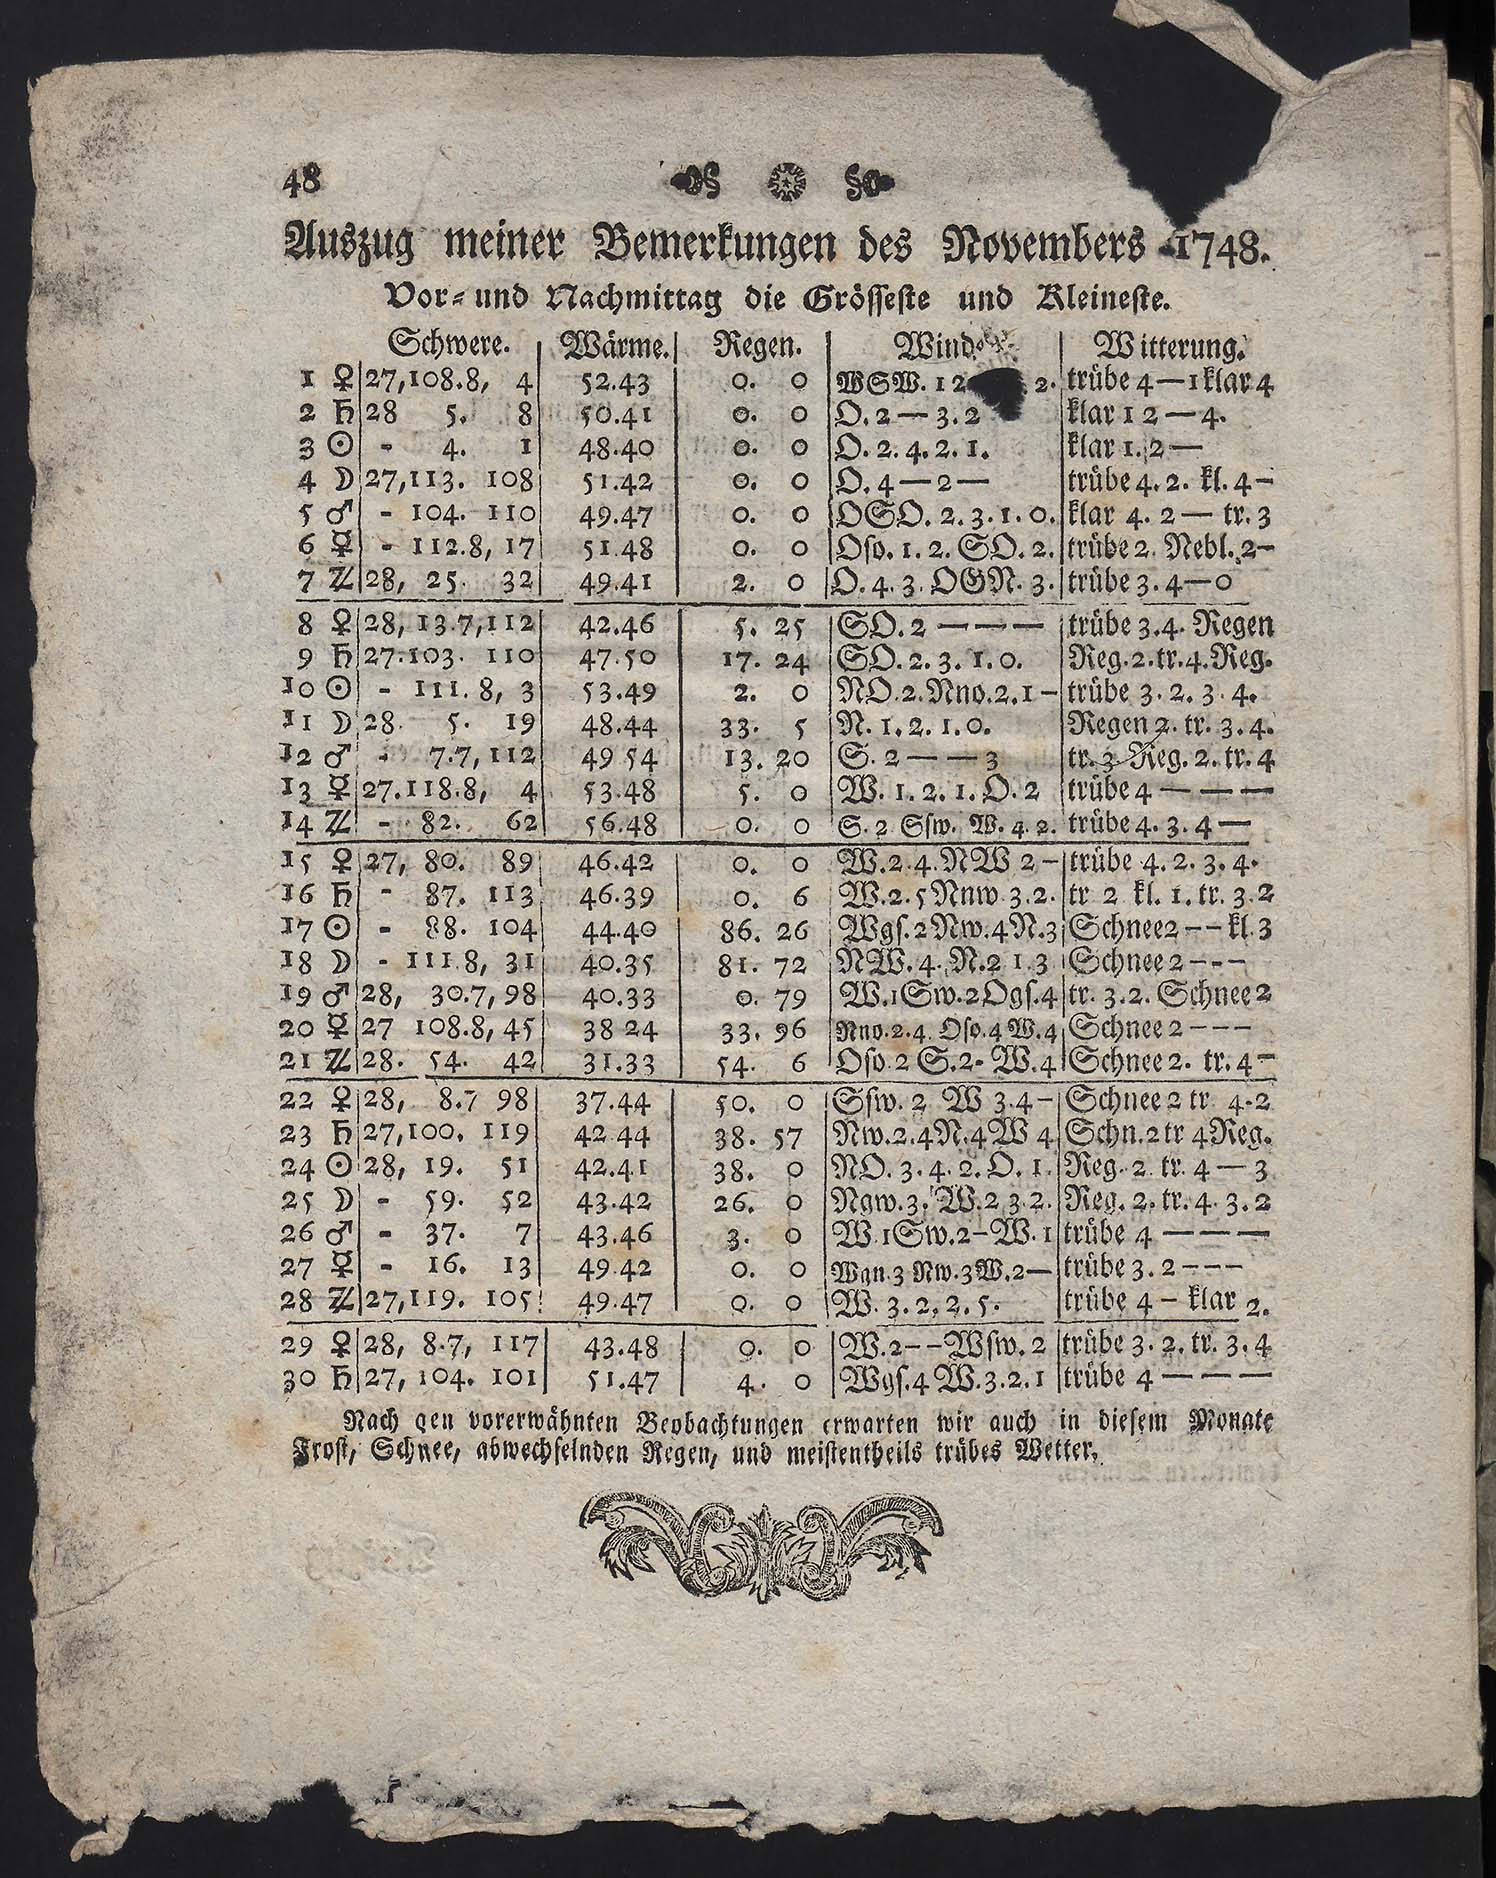 48
Auszug meiner Bemerkungen des Novembers 1748.
Vor- und Nachmittag die Grösseste und Kleineste.
Schwere. Wärme. Regen. Wind. Witterung.
1 ♀ 27,108.8, 4 52.43 0. 0 WSW. 12 2. trübe 4—1klar 4
2 ♄ 28 5. 8 50.41 0. 0 O. 2—3. 2 klar 1 2—4.
3 ☉ - 4. 1 48.40 0. 0 O. 2. 4. 2. 1. klar 1. 2—
4 ☽ 27,113. 108 51.42 0. 0 O. 4—2— trübe 4. 2. kl. 4-
5 ♂ - 104. 110 49.47 0. 0 OSO. 2. 3. 1. 0. klar 4. 2— tr. 3
6 ☿ - 112.8, 17 51.48 0. 0 Oſo. 1. 2. SO. 2. trübe 2. Nebl. 2-
7 ♃ 28, 25. 32 49.41 2. 0 O. 4. 3. OGN. 3. trübe 3. 4—0
8 ♀ 28, 13.7,112 42.46 5. 25 SO. 2 — — — trübe 3. 4. Regen
9 ♄ 27.103. 110 47.50 17. 24 SO. 2. 3. 1. 0. Reg. 2. tr. 4. Reg.
10 ☉ - 111. 8, 3 53.49 2. 0 NO. 2. Nno. 2. 1- trübe 3. 2. 3. 4.
11 ☽ 28. 5. 19 48.44 33. 5 N. 1. 2. 1. 0. Regen 2. tr. 3. 4.
12 ♂ - 7.7, 112 49 54 13. 20 S. 2 — — 3 tr. 3 Reg. 2. tr. 4
13 ☿ 27.118.8, 4 53.48 5. 0 W. 1. 2. 1. O. 2 trübe 4 — — —
14 ♃ - 82. 62 56.48 0. 0 S. 2 Sſw. W. 4. 2. trübe 4. 3. 4—
15 ♀ 27, 80. 89 46.42 0. 0 W. 2. 4. NW 2- trübe 4. 2. 3. 4.
16 ♄ - 87. 113 46.39 0. 6 W. 2. 5 Nnw. 3. 2. tr 2 kl. 1. tr. 3. 2
17 ☉ - 88. 104 44.40 86. 26 Wgſ. 2 Nw. 4 N. 3 Schnee2 - - kl. 3
18 ☽ - 111.8, 31 40.35 81. 72 NW. 4. N. 2 1. 3 Schnee 2 - - -
19 ♂ 28, 30.7, 98 40.33 0. 79 W. 1 Sw. 2 Ogſ. 4 tr. 3. 2. Schnee 2
20 ☿ 27 108.8, 45 38 24 33. 96 Nno. 2. 4. Oſo. 4 W. 4 Schnee 2 - - -
21 ♃ 28. 54. 42 31.33 54. 6 Oſo. 2 S. 2- W. 4 Schnee 2. tr. 4-
22 ♀ 28, 8.7 98 37.44 50. 0 Sſw. 2 W 3. 4- Schnee 2 tr 4.2
23 ♄ 27,100. 119 42.44 38. 57 Nw. 2. 4 N. 4 W 4 Schn. 2 tr 4 Reg.
24 ☉ 28, 19. 51 42.41 38. 0 NO. 3. 4. 2. O. 1. Reg. 2. tr. 4—3
25 ☽ - 59. 52 43.42 26. 0 Ngw. 3. W. 2 3. 2. Reg. 2. tr. 4. 3. 2
26 ♂ - 37. 7 43.46 3. 0 W. 1 Sw. 2-W. 1 trübe 4 — — —
27 ☿ - 16. 13 49.42 0. 0 Wgn. 3 Nw. 3 W. 2— trübe 3. 2 - - -
28 ♃ 27,119. 105 49.47 0. 0 W. 3. 2, 2. 5. trübe 4 - klar 2.
29 ♀ 28, 8.7, 117 43.48 0. 0 W. 2 - - Wſw. 2 trübe 3. 2. tr. 3. 4
30 ♄ 27, 104. 101 51.47 4. 0 Wgſ. 4 W. 3. 2. 1 trübe 4 — — —
Nach qen vorerwähnten Beobachtungen erwarten wir auch in dieſem Monate
Froſt, Schnee, abwechſelnden Regen, und meiſtentheils trübes Wetter.